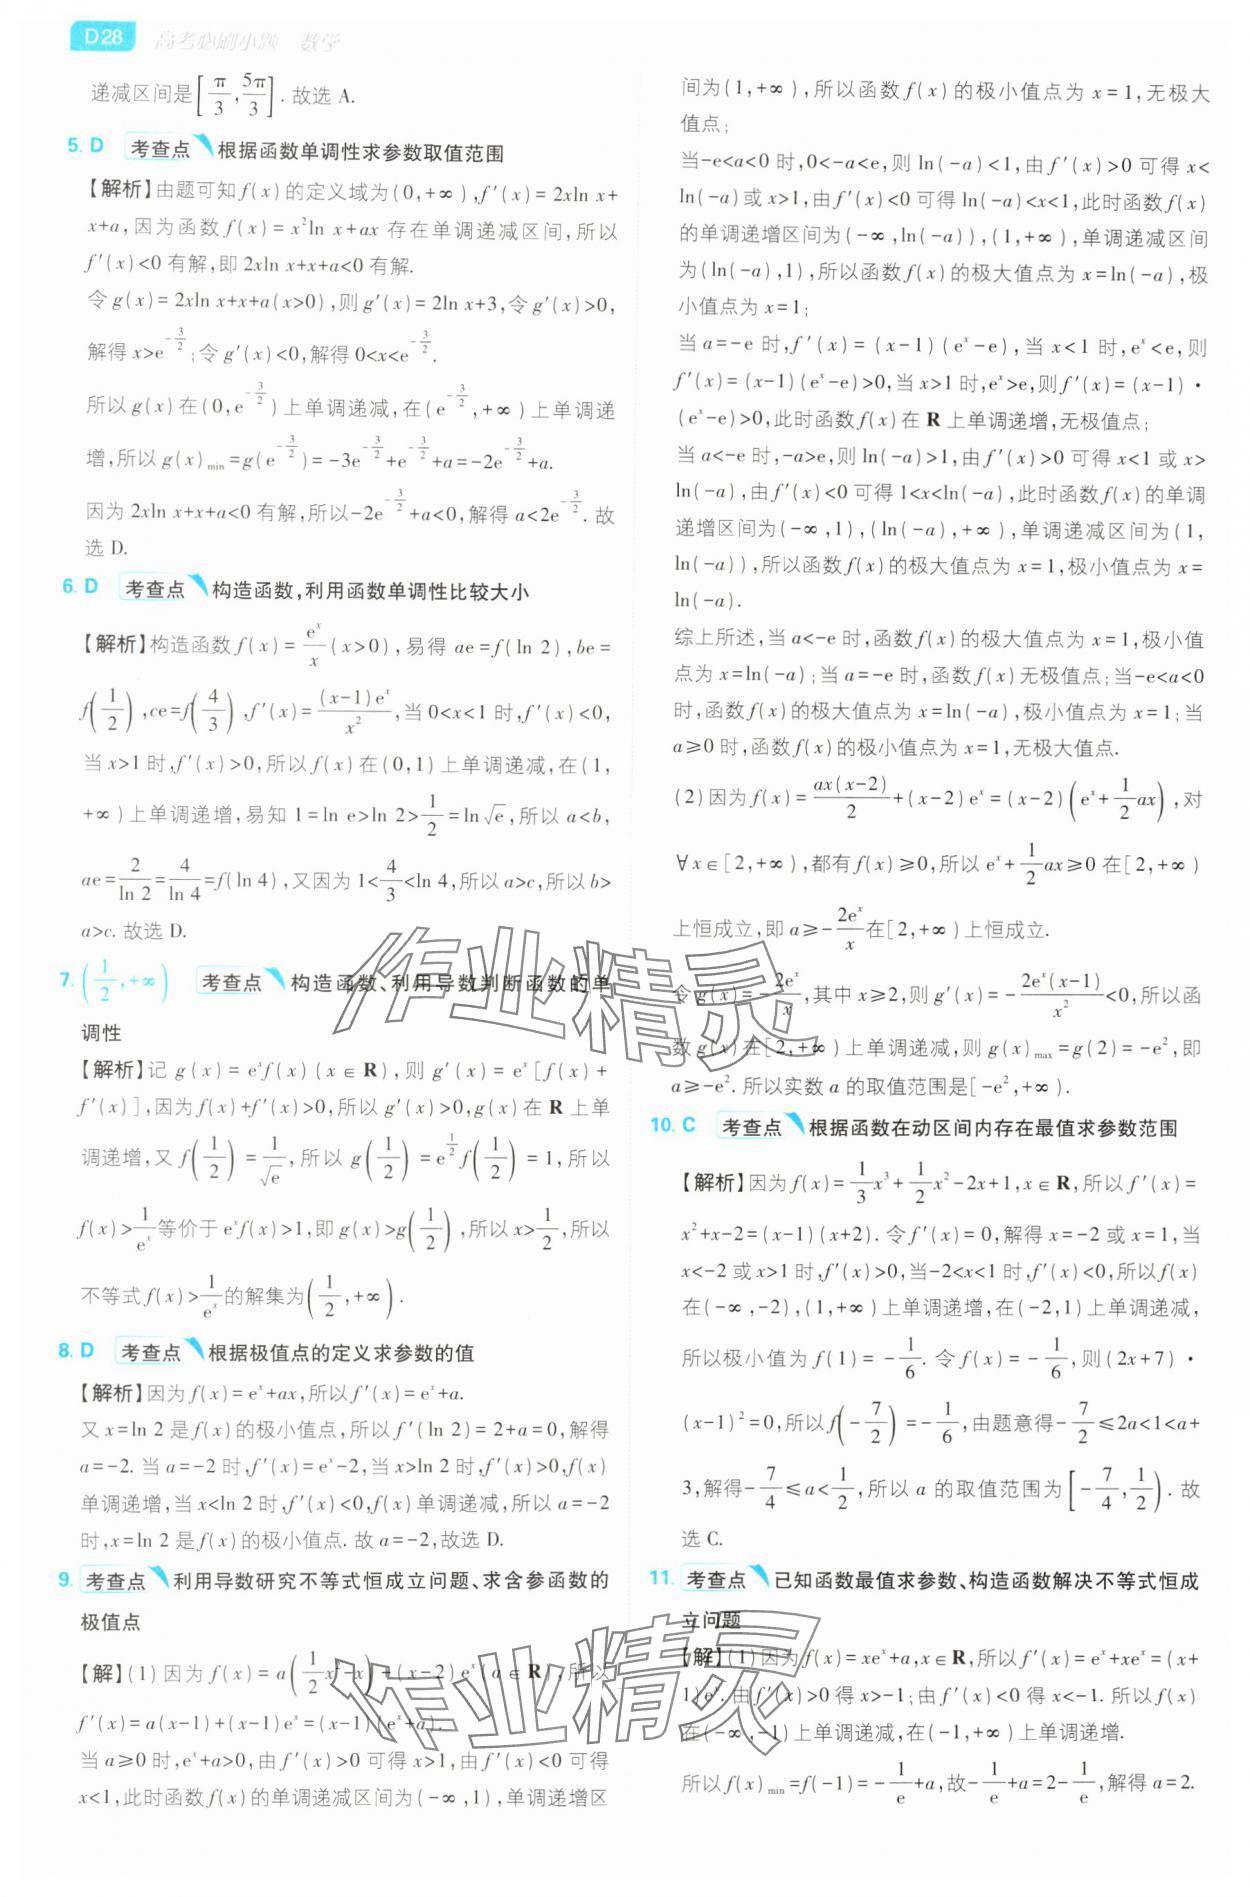 D28 高考必刷小题 数学
递减区间是[π/3,5π/3].故选 A.
5. D 考查点 根据函数单调性求参数取值范围
【解析】由题可知f(x)的定义域为(0,+∞),f′(x)=2xln x+
x+a,因为函数f(x)=x²ln x+ax 存在单调递减区间,所以
f′(x)<0有解,即2xln x+x+a<0有解.
令g(x)=2xln x+x+a(x>0),则g′(x)=2ln x+3,令g′(x)>0,
解得x>e^(-3/2);令g′(x)<0,解得0<x<e^(-3/2).
所以g(x)在(0,e^(-3/2))上单调递减,在(e^(-3/2),+∞)上单调递
增,所以g(x)min=g(e^(-3/2))=-3e^(-3/2)+e^(-3/2)+a=-2e^(-3/2)+a.
因为2xln x+x+a<0有解,所以-2e^(-3/2)+a<0,解得a<2e^(-3/2).故
选 D.
6. D 考查点 构造函数,利用函数单调性比较大小
【解析】构造函数f(x)=e^x/x(x>0),易得ae=f(ln 2),be=
f(1/2),ce=f(4/3),f′(x)=(x-1)e^x/x²,当0<x<1时,f′(x)<0,
当x>1时,f′(x)>0,所以f(x)在(0,1)上单调递减,在(1,
+∞)上单调递增,易知1=ln e>ln 2>1/2=ln√e,所以a<b,
ae=2/ln 2=4/ln 4=f(ln 4),又因为1<4/3<ln 4,所以a>c,所以b>
a>c.故选 D.
7. (1/2,+∞) 考查点 构造函数、利用导数判断函数的单
调性
【解析】记g(x)=e^x f(x)(x∈R),则g′(x)=e^x[f(x)+
f′(x)],因为f(x)+f′(x)>0,所以g′(x)>0,g(x)在R上单
调递增,又f(1/2)=1/√e,所以g(1/2)=e^(1/2)f(1/2)=1,所以
f(x)>1/e^x等价于e^x f(x)>1,即g(x)>g(1/2),所以x>1/2,所以
不等式f(x)>1/e^x的解集为(1/2,+∞).
8. D 考查点 根据极值点的定义求参数的值
【解析】因为f(x)=e^x+ax,所以f′(x)=e^x+a.
又x=ln 2是f(x)的极小值点,所以f′(ln 2)=2+a=0,解得
a=-2.当a=-2时,f′(x)=e^x-2,当x>ln 2时,f′(x)>0,f(x)
单调递增,当x<ln 2时,f′(x)<0,f(x)单调递减,所以a=-2
时,x=ln 2是f(x)的极小值点.故a=-2,故选 D.
9. 考查点 利用导数研究不等式恒成立问题、求含参函数的
极值点
【解】(1)因为f(x)=a(1/2x²-x)+(x-2)e^x(a∈R),所以
f′(x)=a(x-1)+(x-1)e^x=(x-1)(e^x+a).
当a≥0时,e^x+a>0,由f′(x)>0可得x>1,由f′(x)<0可得
x<1,此时函数f(x)的单调递减区间为(-∞,1),单调递增区
间为(1,+∞),所以函数f(x)的极小值点为x=1,无极大
值点;
当-e<a<0时,0<-a<e,则ln(-a)<1,由f′(x)>0可得x<
ln(-a)或x>1,由f′(x)<0可得ln(-a)<x<1,此时函数f(x)
的单调递增区间为(-∞,ln(-a)),(1,+∞),单调递减区间
为(ln(-a),1),所以函数f(x)的极大值点为x=ln(-a),极
小值点为x=1;
当a=-e时,f′(x)=(x-1)(e^x-e),当x<1时,e^x<e,则
f′(x)=(x-1)(e^x-e)>0,当x>1时,e^x>e,则f′(x)=(x-1)·
(e^x-e)>0,此时函数f(x)在R上单调递增,无极值点;
当a<-e时,-a>e,则ln(-a)>1,由f′(x)>0可得x<1或x>
ln(-a),由f′(x)<0可得1<x<ln(-a),此时函数f(x)的单调
递增区间为(-∞,1),(ln(-a),+∞),单调递减区间为(1,
ln(-a)),所以函数f(x)的极大值点为x=1,极小值点为x=
ln(-a).
综上所述,当a<-e时,函数f(x)的极大值点为x=1,极小值
点为x=ln(-a);当a=-e时,函数f(x)无极值点;当-e<a<0
时,函数f(x)的极大值点为x=ln(-a),极小值点为x=1;当
a≥0时,函数f(x)的极小值点为x=1,无极大值点.
(2)因为f(x)=ax(x-2)/2+(x-2)e^x=(x-2)(e^x+1/2ax),对
∀x∈[2,+∞),都有f(x)≥0,所以e^x+1/2ax≥0在[2,+∞)
上恒成立,即a≥-2e^x/x在[2,+∞)上恒成立.
令g(x)=-2e^x/x,其中x≥2,则g′(x)=-2e^x(x-1)/x²<0,所以函
数g(x)在[2,+∞)上单调递减,则g(x)max=g(2)=-e²,即
a≥-e².所以实数a的取值范围是[-e²,+∞).
10. C 考查点 根据函数在动区间内存在最值求参数范围
【解析】因为f(x)=1/3x³+1/2x²-2x+1,x∈R,所以f′(x)=
x²+x-2=(x-1)(x+2).令f′(x)=0,解得x=-2或x=1,当
x<-2或x>1时,f′(x)>0,当-2<x<1时,f′(x)<0,所以f(x)
在(-∞,-2),(1,+∞)上单调递增,在(-2,1)上单调递减,
所以极小值为f(1)=-1/6.令f(x)=-1/6,则(2x+7)·
(x-1)²=0,所以f(-7/2)=-1/6,由题意得-7/2≤2a<1<a+
3,解得-7/4≤a<1/2,所以a的取值范围为[-7/4,1/2).故
选 C.
11. 考查点 已知函数最值求参数、构造函数解决不等式恒成
立问题
【解】(1)因为f(x)=xe^x+a,x∈R,所以f′(x)=e^x+xe^x=(x+
1)e^x.由f′(x)>0得x>-1;由f′(x)<0得x<-1.所以f(x)
在(-∞,-1)上单调递减,在(-1,+∞)上单调递增.
所以f(x)min=f(-1)=-1/e+a,故-1/e+a=2-1/e,解得a=2.
作业精灵
作业精灵